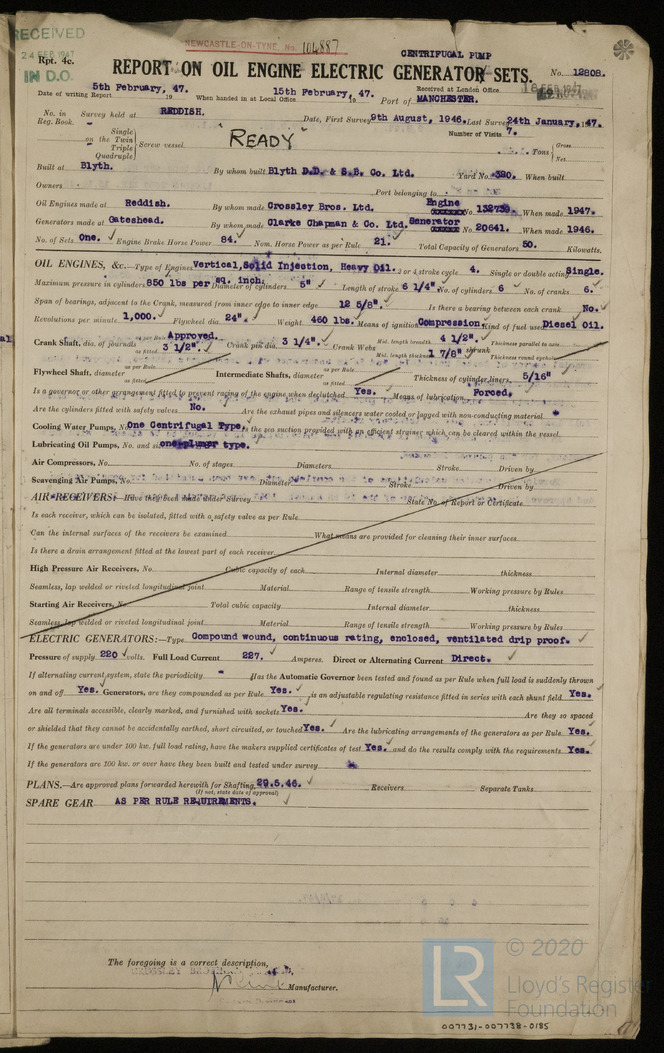 RECEIVED
24 FEB 1947
IN D.O.
NEWCASTLE-ON-TYNE. No. 104887
Rpt. 4c.
CENTRIFUGAL PUMP
REPORT ON OIL ENGINE ELECTRIC GENERATOR SETS.
No. 12808.
Received at London Office
Date of writing Report 5th February, 47. 19 When handed in at Local Office 15th February, 47. 19 Port of MANCHESTER.
No. in Reg. Book. Survey held at REDDISH. Date, First Survey 9th August, 1946. Last Survey 24th January, 1947.
Number of Visits 7.
Single
on the Twin
Triple
Quadruple
Screw vessel
"READY"
Tons
Gross
Net
Built at Blyth. By whom built Blyth D.D. & S.B. Co. Ltd. Yard No. 320. When built
Owners Port belonging to
Oil Engines made at Reddish. By whom made Crossley Bros. Ltd. Engine No. 132739. When made 1947.
Generators made at Gateshead. By whom made Clarke Chapman & Co. Ltd. Generator No. 20641. When made 1946.
No. of Sets One. Engine Brake Horse Power 84. Nom. Horse Power as per Rule 21. Total Capacity of Generators 50. Kilowatts.
OIL ENGINES, &c.—Type of Engines Vertical, Solid Injection, Heavy Oil. 2 or 4 stroke cycle 4. Single or double acting Single.
Maximum pressure in cylinders 850 lbs per sq. inch. Diameter of cylinders 5" Length of stroke 6 1/4". No. of cylinders 6 No. of cranks 6.
Span of bearings, adjacent to the Crank, measured from inner edge to inner edge 12 5/8". Is there a bearing between each crank No.
Revolutions per minute 1,000. Flywheel dia. 24". Weight 460 lbs. Means of ignition Compression. Kind of fuel used Diesel Oil.
Crank Shaft, dia. of journals as per Rule Approved. as fitted 3 1/2". Crank pin dia. 3 1/4". Crank Webs Mid. length breadth 4 1/2". Thickness parallel to axis
Mid. length thickness 1 7/8" shrunk Thickness round eyehole
Flywheel Shaft, diameter as per Rule as fitted Intermediate Shafts, diameter as per Rule as fitted Thickness of cylinder liners, 5/16"
Is a governor or other arrangement fitted to prevent racing of the engine when declutched Yes. Means of lubrication Forced.
Are the cylinders fitted with safety valves No. Are the exhaust pipes and silencers water cooled or lagged with non-conducting material
Cooling Water Pumps, No. One Centrifugal Type. Is the sea suction provided with an efficient strainer which can be cleared within the vessel
Lubricating Oil Pumps, No. and size one plunger type.
Air Compressors, No. No. of stages Diameters Stroke Driven by
Scavenging Air Pumps, No. Diameter Stroke Driven by
AIR RECEIVERS:—Have they been made under Survey State No. of Report or Certificate
Is each receiver, which can be isolated, fitted with a safety valve as per Rule
Can the internal surfaces of the receivers be examined What means are provided for cleaning their inner surfaces
Is there a drain arrangement fitted at the lowest part of each receiver
High Pressure Air Receivers, No. Cubic capacity of each Internal diameter thickness
Seamless, lap welded or riveted longitudinal joint Material Range of tensile strength Working pressure by Rules
Starting Air Receivers, No. Total cubic capacity Internal diameter thickness
Seamless, lap welded or riveted longitudinal joint Material Range of tensile strength Working pressure by Rules
ELECTRIC GENERATORS:—Type Compound wound, continuous rating, enclosed, ventilated drip proof.
Pressure of supply 220 volts. Full Load Current 227. Amperes. Direct or Alternating Current Direct.
If alternating current system, state the periodicity Has the Automatic Governor been tested and found as per Rule when full load is suddenly thrown
on and off Yes. Generators, are they compounded as per Rule Yes. is an adjustable regulating resistance fitted in series with each shunt field Yes.
Are all terminals accessible, clearly marked, and furnished with sockets Yes. Are they so spaced
or shielded that they cannot be accidentally earthed, short circuited, or touched Yes. Are the lubricating arrangements of the generators as per Rule Yes.
If the generators are under 100 kw. full load rating, have the makers supplied certificates of test Yes. and do the results comply with the requirements Yes.
If the generators are 100 kw. or over have they been built and tested under survey
PLANS.—Are approved plans forwarded herewith for Shafting 29.5.46. Receivers Separate Tanks
(If not, state date of approval)
SPARE GEAR AS PER RULE REQUIREMENTS.
The foregoing is a correct description,
Manufacturer.
LR
© 2020
Lloyd's Register
Foundation
007731-007738-0185